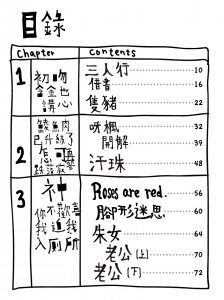 目錄
Chapter Contents
1
初吻
金金也
講心
三人行 10
借書 16
隻豬 22
2
鯪魚肉
已升級了
怎可再
跌落寂寞
呀楓 32
開解 39
汗珠 48
3
神
你不歡喜
我追我
入廁所
Roses are red. 56
腳形迷思 60
朱女 64
老公(上) 70
老公(下) 72